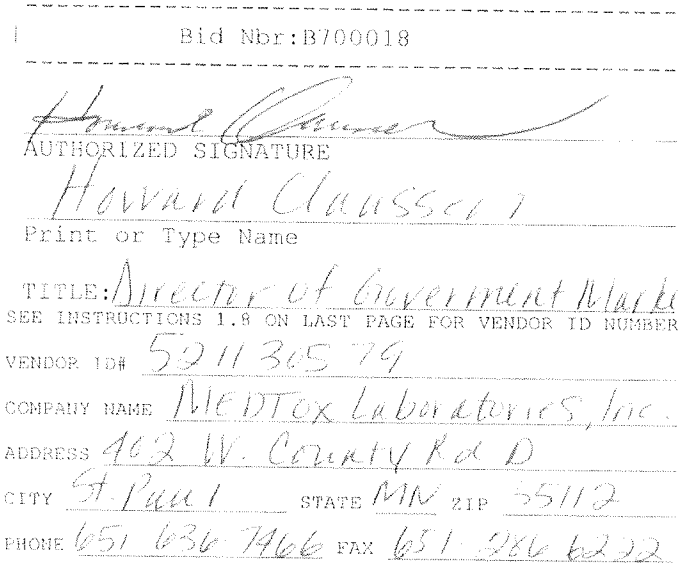 Bid Nbr:B700018
Howard Claussen
AUTHORIZED SIGNATURE
Howard Claussen
Print or Type Name
TITLE: Director of Goverment Marke
SEE INSTRUCTIONS 1.8 ON LAST PAGE FOR VENDOR ID NUMBER
VENDOR ID# 521130579
COMPANY NAME MEDTOX Laboratories, Inc.
ADDRESS 402 W. County Rd D
CITY St. Paul STATE MN ZIP 55112
PHONE 651 636 7466 FAX 651 286 6222